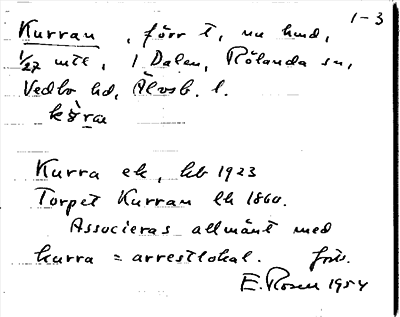 1-3
Kurran, förr t, nu hmd,
1/27 mtl, 1 Dalen, Rölanda sn,
Vedbo hd, Älvsb. l.
Kurra ek, hb 1923
Torpet Kurran lk 1860.
Associeras allmänt med
kurra = arrestlokal.
E. Rosen 1954